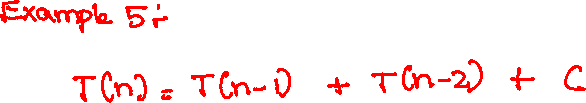 Example 5:-
T(n) = T(n-1) + T(n-2) + C